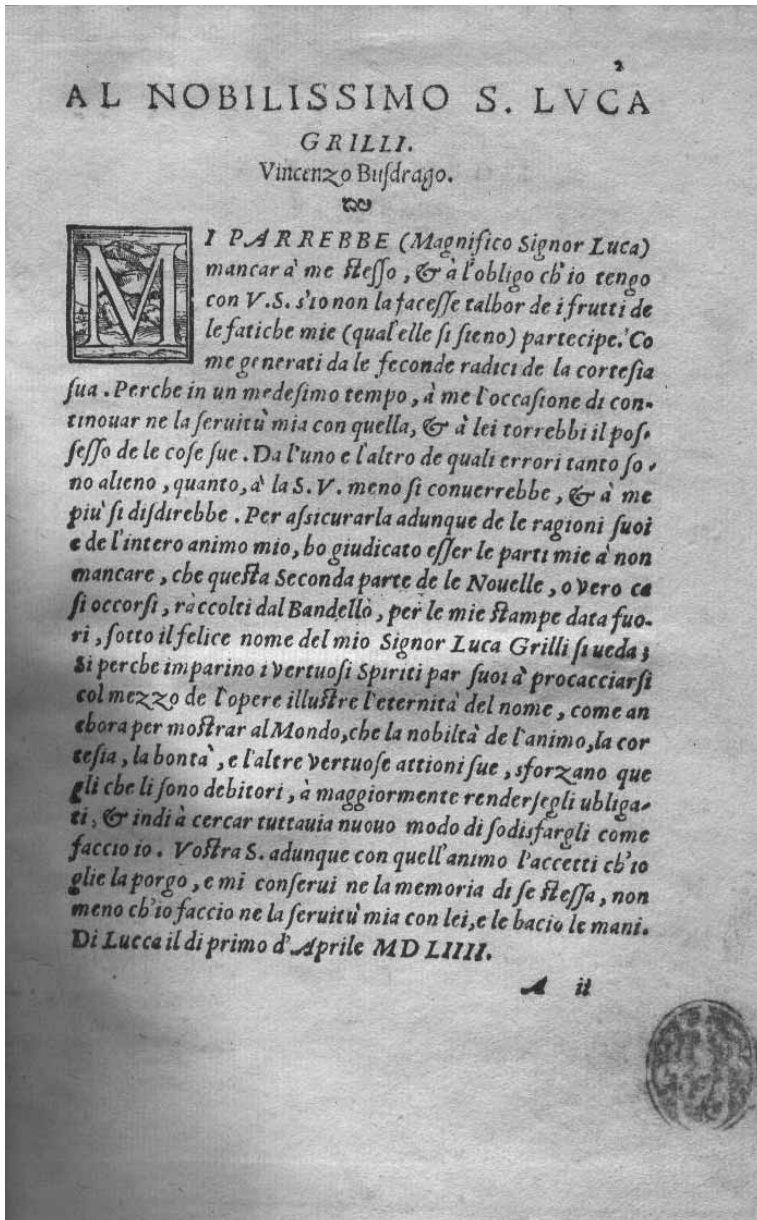 2
AL NOBILISSIMO S. LVCA
GRILLI.
Vincenzo Buſdrago.
MI PARREBBE (Magnifico Signor Luca)
mancar à me ſteſſo, & à l'obligo ch'io tengo
con V.S. s'io non la faceſſe talhor de i frutti de
le fatiche mie (qual'elle ſi ſieno) partecipe. Co
me generati da le feconde radici de la corteſia
ſua. Perche in un medeſimo tempo, à me l'occaſione di con-
tinouar ne la ſeruitù mia con quella, & à lei torrebbi il poſ-
ſeſſo de le coſe ſue. Da l'uno e l'altro de quali errori tanto ſo-
no alieno, quanto, à la S. V. meno ſi conuerrebbe, & à me
più ſi diſdirebbe. Per aſsicurarla adunque de le ragioni ſuoi
e de l'intero animo mio, ho giudicato eſſer le parti mie à non
mancare, che queſta Seconda parte de le Nouelle, o vero ca
ſi occorſi, raccolti dal Bandello, per le mie ſtampe data fuo-
ri, ſotto il felice nome del mio Signor Luca Grilli ſi ueda;
Si perche imparino i vertuoſi Spiriti par ſuoi à procacciarſi
col mezzo de l'opere illuſtre l'eternità del nome, come an
chora per moſtrar al Mondo, che la nobiltà de l'animo, la cor
teſia, la bontà, e l'altre vertuoſe attioni ſue, sforzano que
gli che li ſono debitori, à maggiormente renderſegli ubliga-
ti, & indi à cercar tuttauia nuouo modo di ſodisfargli come
faccio io. Voſtra S. adunque con quell'animo l'accetti ch'io
glie la porgo, e mi conſerui ne la memoria di ſe ſteſſa, non
meno ch'io faccio ne la ſeruitù mia con lei, e le bacio le mani.
Di Lucca il di primo d'Aprile MD LIIII.
A ii